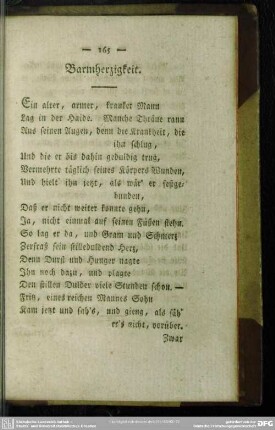 — 265 —
Barmherzigkeit.
Ein alter, armer, kranker Mann
Lag in der Haide. Manche Thräne rann
Aus seinen Augen, denn die Krankheit, die
ihn schlug,
Und die er bis dahin geduldig trug,
Vermehrte täglich seines Körpers Wunden,
Und hielt ihn jetzt, als wär' er festge-
bunden,
Daß er nicht weiter konnte gehn,
Ja, nicht einmal auf seinen Füßen stehn.
So lag er da, und Gram und Schmerz
Zerfraß sein stilleduldend Herz,
Denn Durst und Hunger nagte
Ihn noch dazu, und plagte
Den stillen Dulder viele Stunden schon. —
Fritz, eines reichen Mannes Sohn
Kam jetzt und sah's, und gieng, als säh'
er's nicht, vorüber.
Zwar